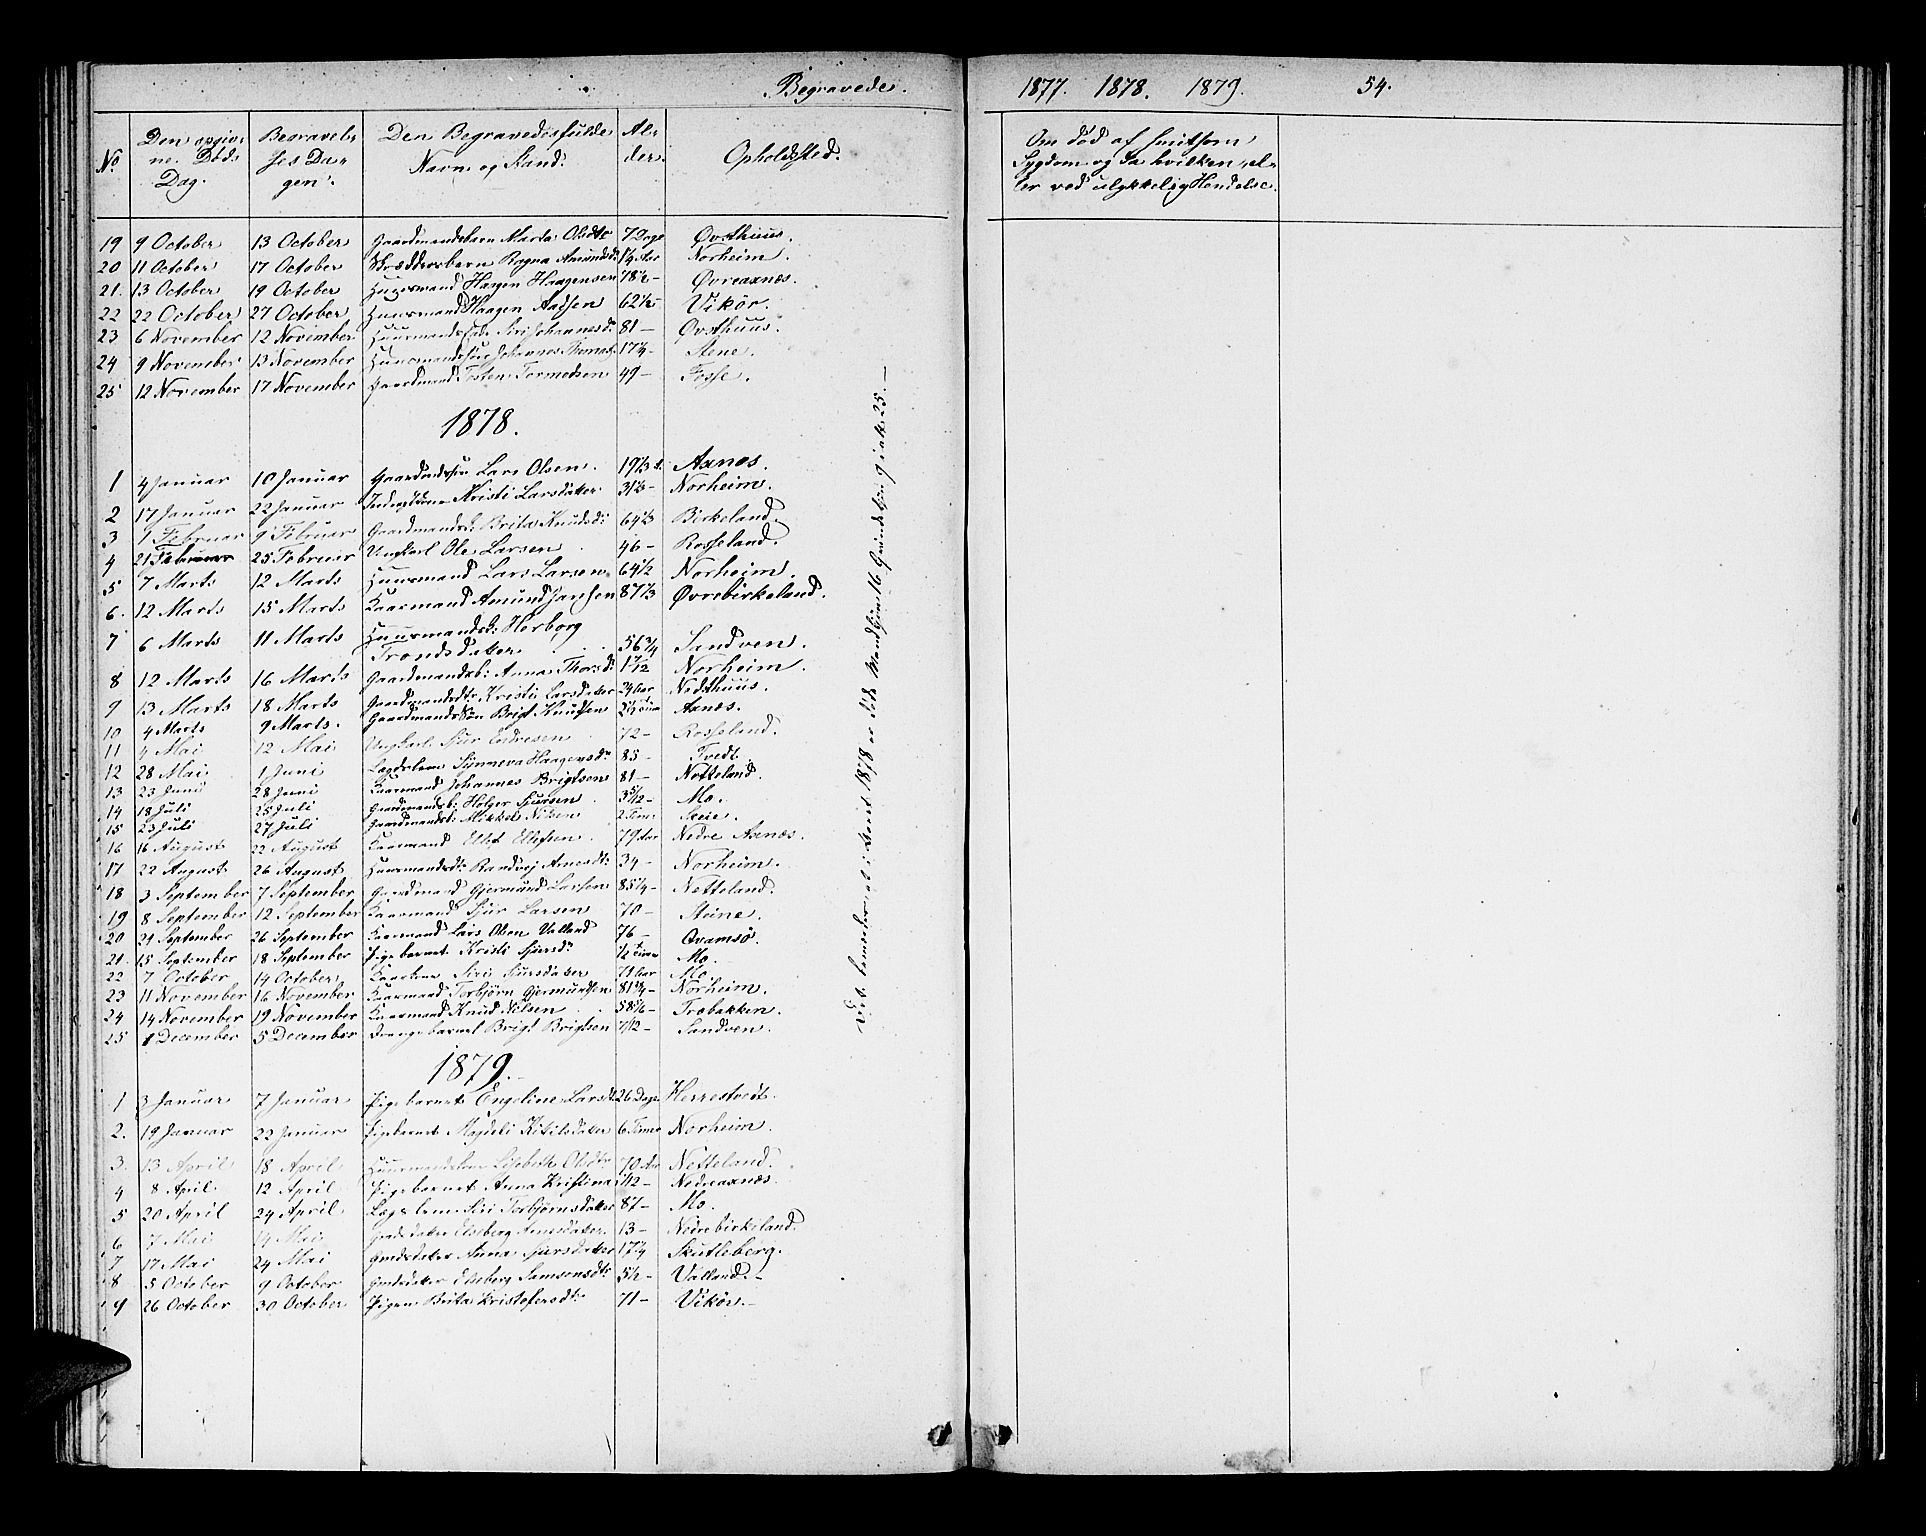 Begravede.
1877. 1878. 1879. 54.
No Den opgivne Döds Dag. Begravelses Dagen. Den Begravedes fulde Navn og Stand. Alder. Opholdssted.
Om död af smitsom Sygdom og da hvilken, eller ved ulykkelig Hendelse.
19 9 October 13 October Gaardmandsbarn Marta Olsdtr 7 Dage Øvsthuus.
20 11 October 17 October Skrædderbarn Ragna Amundsd. 1/4 Aar Norheim.
21. 13 October 19 October Huusmand Haagen Haagensen 78 1/2 – Øvreaxnæs.
22 22 October 27 October Huusmand Haagen Aadsen 62 1/2 – Vikör.
23 6 November 12 November Siri Johannesd. 81 – Øvsthuus.
24 9 November 13 November Huusmandssön Johannes 17 1/4 – Stene.
25 12 November 17 November Gaardmand Tosten Tormodsen 49 – Fosse.
1878.
1 4 Januar 10 Januar Lars Olsen. 19 1/3 Axnæs.
2 17 Januar 22 Januar Kristi Larsdatter 31 1/3 – Norheim.
3 1 Februar 9 Februar Brita Knudsd: 64 2/3 Birkeland.
4 21 Februar 25 Februar Ungkarl Ole Larsen 46 – Rosseland.
5 7 Marts 12 Marts Huusmand Lars Larsen 64 1/2 Norheim.
6. 12 Marts 15 Marts Kaarmand Amund Jansen 87 1/3 Øvrebirkeland.
7 6 Marts 11 Marts Huusmandsk: Herborg
Trondsdatter 56 3/4 Sandven.
8 12 Marts 16 Marts Gaardmandsb: Anna Thorsd: 1 1/12 Norheim.
9 13 Marts 18 Marts Gaardmandsdtr Kristi Larsdatter 24 Aar Nedsthuus.
10 4 Marts 9 Marts. Gaardmandssön Brigt Knudsen Axnæs.
11 4 Mai 12 Mai Ungkarl Sjur Endresen 72 – Rosseland.
12 28 Mai 1 Juni Synneva Haagensd: 85 – Tvedt.
13 23 Juni 28 Juni Kaarmand Johannes Brigtsen 81 – Netteland.
14 18 Juli 25 Juli Gaardmandsb: Holger Sjursen 3 5/12 – Mo.
15 23 Juli 27 Juli Gaardmandsb: Mikkel Nilsen 2 Tim:
16 16 August 22 August Kaarmand Ellef Ellefsen 79 Aar Nedre Axnæs.
17 22 August 26 August Huusmandsdtr Randvej Arnesdtr 34 – Norheim.
18 3 September 7 September Gaardmand Gjermund Larsen 85 1/4 – Netteland.
19 8 September 12 September Kaarmand Sjur Larsen 70 – Steine.
20 24 September 26 September Kaarmand Lars Olsen Valland 76 – Qvamsö.
21. 15 September 18 September Pigebarnet Kristi Sjursdtr 1/2 Time Mo.
22 7 October 14 October Siri Sjursdatter 71 Aar Mo.
23 11 November 16 November Kaarmand Torbjörn Gjermundsen 81 3/4 – Norheim.
24 14 November 19 November Kaarmand Knud Nilsen 58 5/6 – Træbakken.
25 1 December 5 December Drengebarnet Brigt Brigtsen 7/12 – Sandven.
1879.
1 3 Januar 7 Januar Pigebarnet Engeline Larsdtr 26 Dage Herrestvedt.
2. 19 Januar 22 Januar Pigebarnet Magdeli Kitilsdatter 6 Timer Norheim.
3. 13 April 18 April Lisbeth Olsdtr 70 Aar Netteland.
4 8 April. 12 April Pigebarnet Anna Kristina 1/12 – Nedreaxnæs.
5 20 April 24 April Siri Torbjörnsdatter 87 – Mo.
6 7 Mai 14 Mai Elseberg Arnesdatter. 13 – Nedrebirkeland.
7 17 Mai 24 Mai Gmdsdatter Anna Sjursdatter 17 1/4 Skutleberg.
8 5 October 9 October Gmdsdatter Elseberg Samsonsdtr 5 1/2 – Valland. –
9 26 October 30 October Pigen Brita Kristofersdtr 71 – Vikör. –
bemærkes, at i Aaret 1878 er döde Mandkjön 16 Qvindekjön 9 ialt 25. –